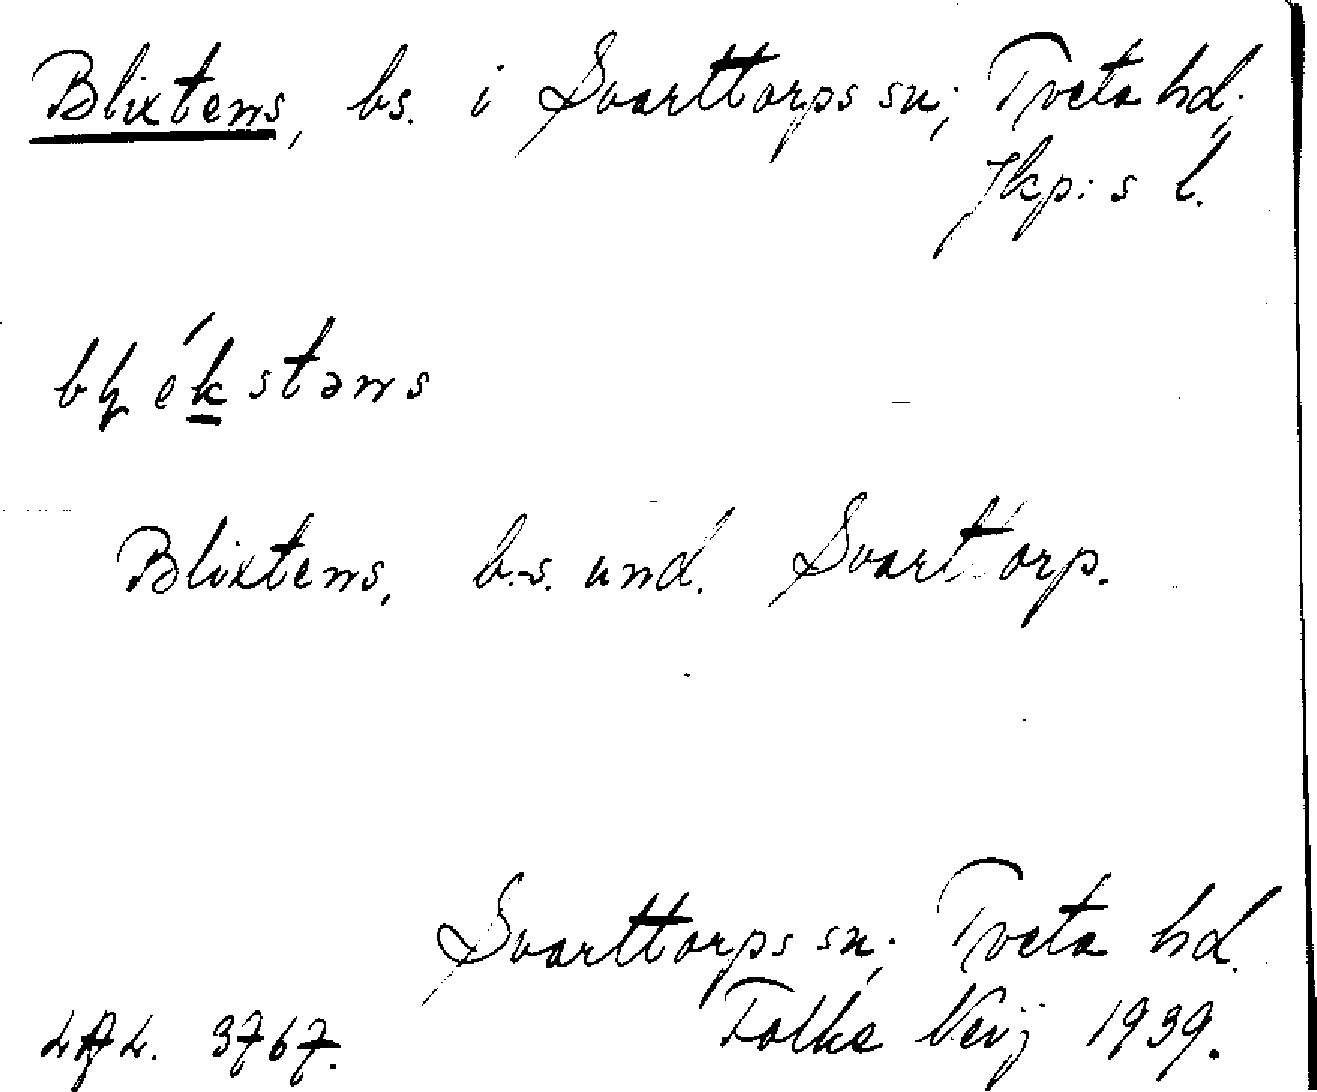 Blixtens, bs. i Svarttorps sn; Tveta hd;
Jkp:s l.
stəns
Blixtens, b.s. und. Svarttorp.
Svarttorps sn; Tveta hd.
3767. Folke 1939.